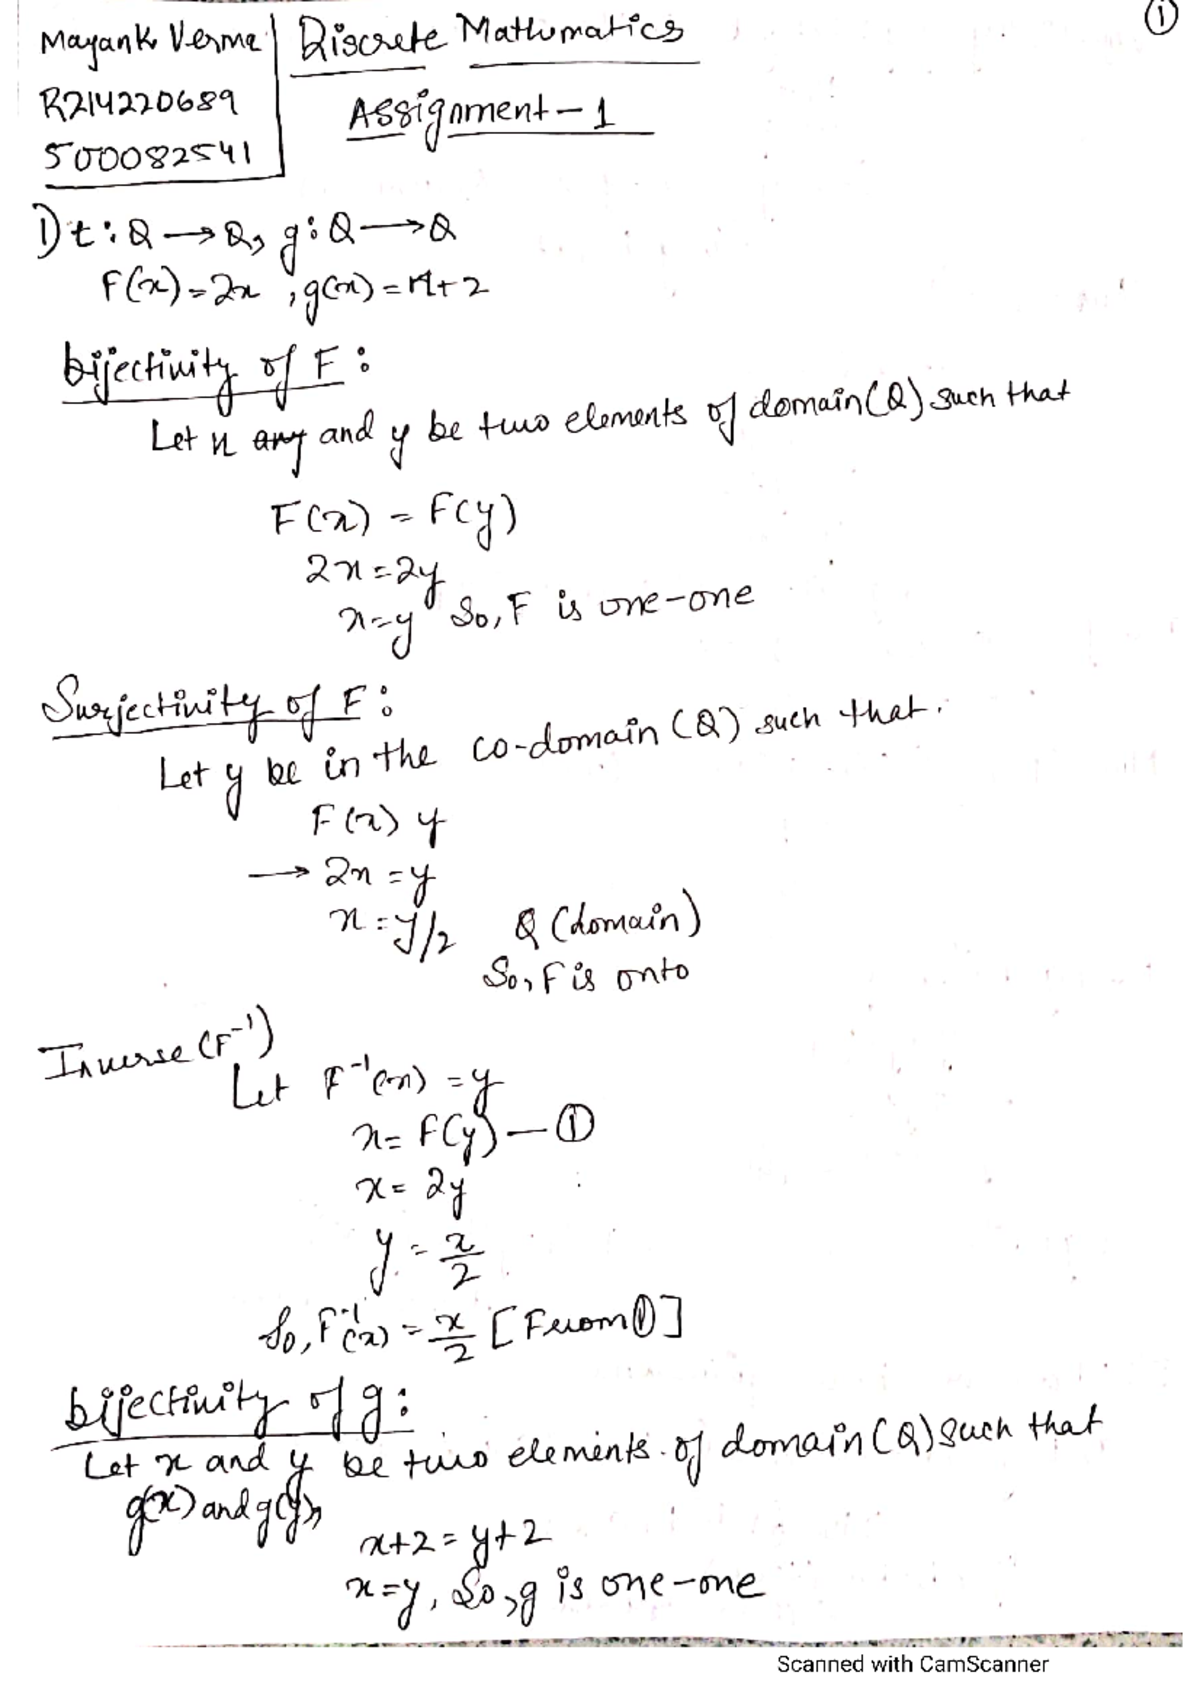 ①
Mayank Verma
R214220689
500082541
Discrete Mathematics
Assignment-1
1) t: Q → Q, g: Q → Q
F(x) = 2x, g(x) = x+2
bijectivity of F:
Let x any and y be two elements of domain (Q) such that
F(x) = F(y)
2x = 2y
x = y So, F is one-one
Surjectivity of F:
Let y be in the co-domain (Q) such that.
F(x) y
→ 2x = y
x = y/2 Q (domain)
So, F is onto
Inverse (F⁻¹)
Let F⁻¹(x) = y
x = F(y) — ①
x = 2y
y = x/2
So, F⁻¹(x) = x/2 [From ①]
bijectivity of g:
Let x and y be two elements of domain (Q) such that
g(x) and g(y),
x+2 = y+2
x = y, So, g is one-one
Scanned with CamScanner